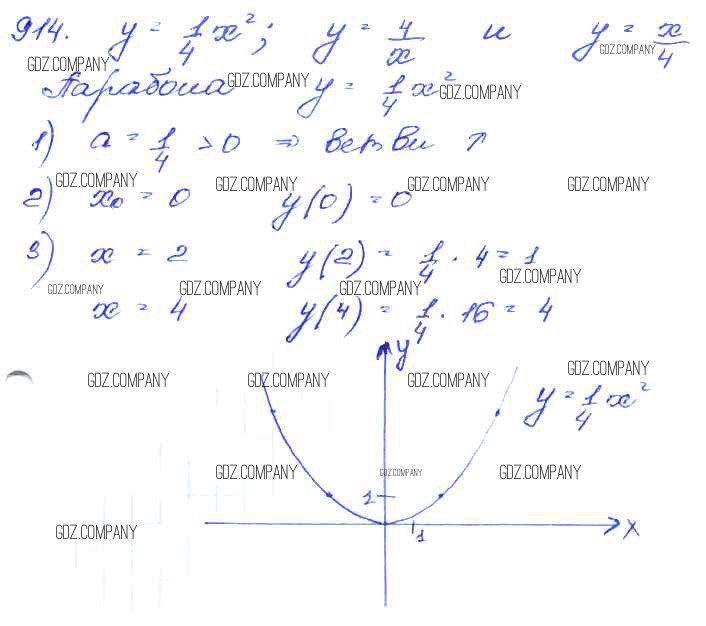 914. y = 1/4 x²; y = 4/x и y = x/4
GDZ.COMPANY GDZ.COMPANY
Парабола y = 1/4 x²
GDZ.COMPANY GDZ.COMPANY
1) a = 1/4 > 0 ⇒ ветви ↑
GDZ.COMPANY GDZ.COMPANY GDZ.COMPANY GDZ.COMPANY
2) x₀ = 0 y(0) = 0
3) x = 2 y(2) = 1/4 · 4 = 1
GDZ.COMPANY
GDZ.COMPANY GDZ.COMPANY GDZ.COMPANY
x = 4 y(4) = 1/4 · 16 = 4
y
GDZ.COMPANY
GDZ.COMPANY GDZ.COMPANY GDZ.COMPANY
y = 1/4 x²
GDZ.COMPANY GDZ.COMPANY GDZ.COMPANY
1
GDZ.COMPANY
x
1